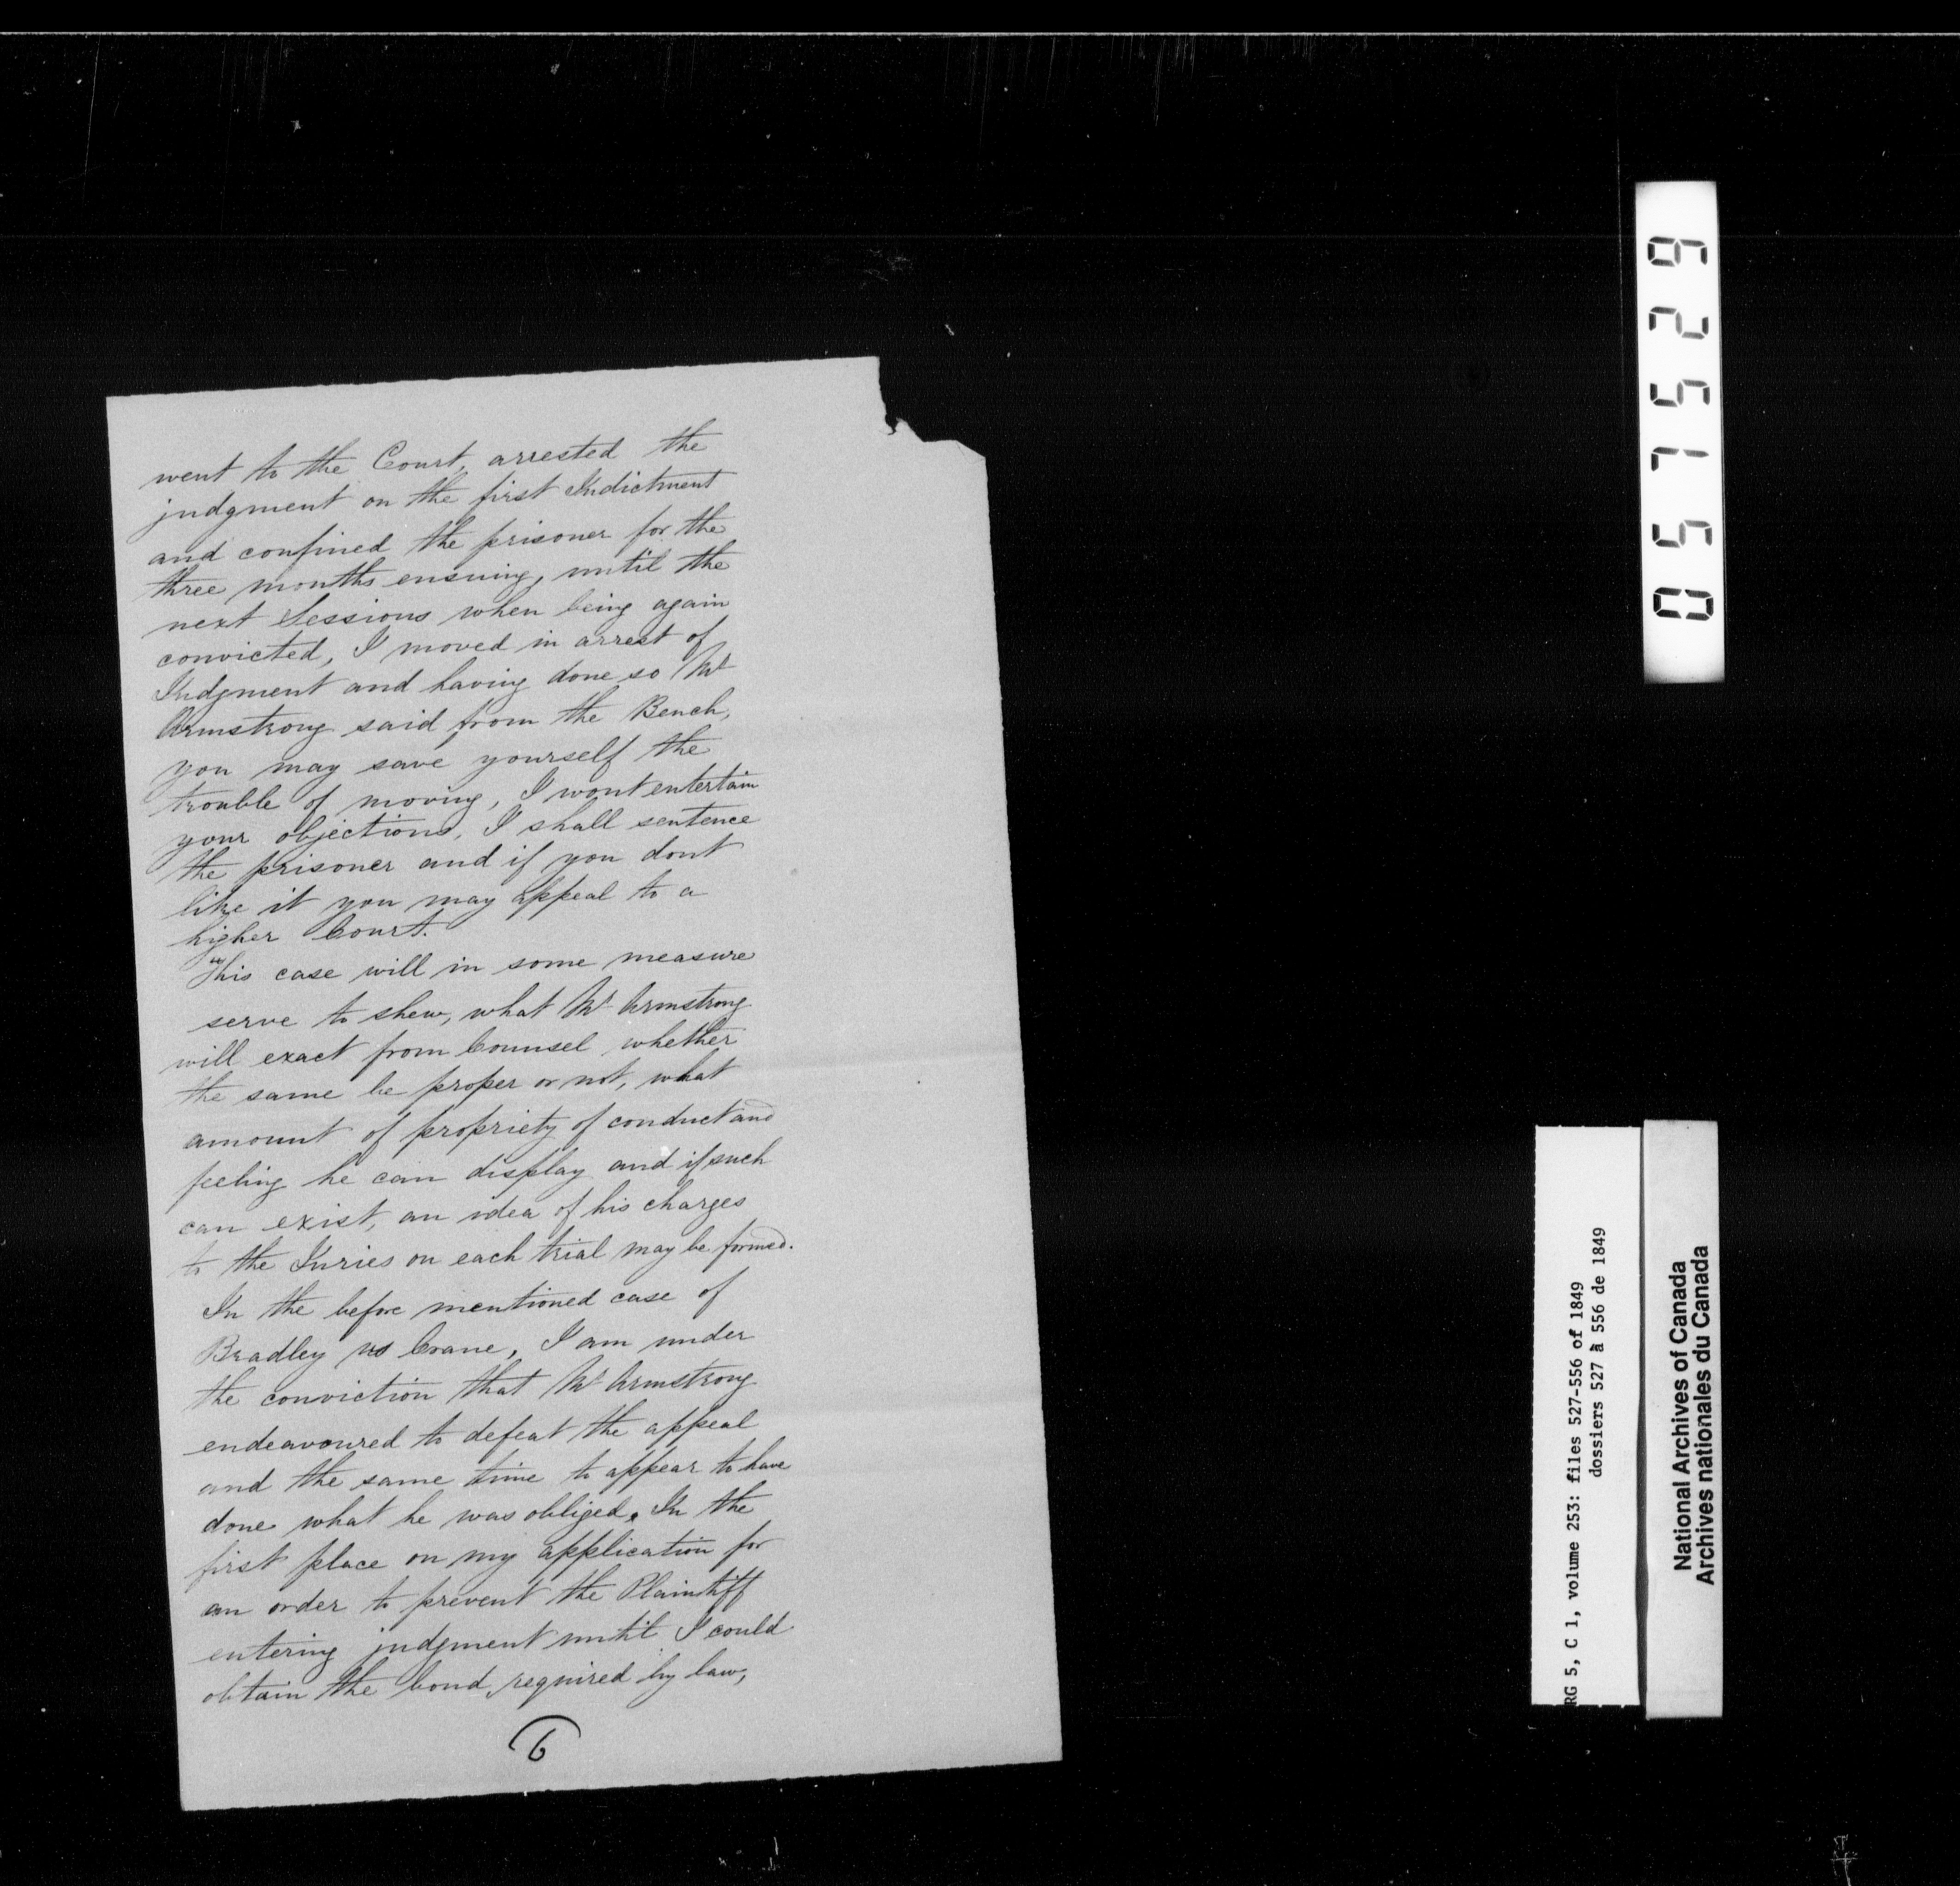 went to the Court, arrested the
judgment on the first Indictment
and confined the prisoner for the
three months ensuing, until the
next Sessions when being again
convicted, I moved in arrest of
Judgment and having done so Mr
Armstrong said from the Bench,
you may save yourself the
trouble of moving, I wont entertain
your objections, I shall sentence
the prisoner and if you dont
like it you may appeal to a
higher Court.
This case will in some measure
serve to shew, what Mr Armstrong
will exact from Counsel, whether
the same be proper or not, what
amount of propriety of conduct and
feeling he can display and if such
can exist, an idea of his charges
to the Juries on each trial may be formed.
In the before mentioned case of
Bradley vs Crane, I am under
the conviction that Mr Armstrong
endeavoured to defeat the appeal
and the same time to appear to have
done what he was obliged. In the
first place on my application for
an order to prevent the Plaintiff
entering judgment until I could
obtain the bond required by law,
6
057529
RG 5, C 1, volume 253: files 527-556 of 1849
dossiers 527 à 556 de 1849
National Archives of Canada
Archives nationales du Canada